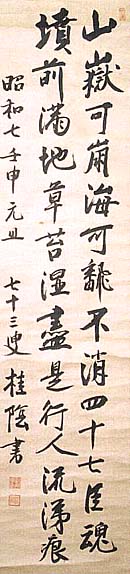 山嶽可崩海可飜不消四十七臣魂
墳前満地草苔湿盡是行人流涕痕
昭和七壬申元旦 七十三叟 桂陰書